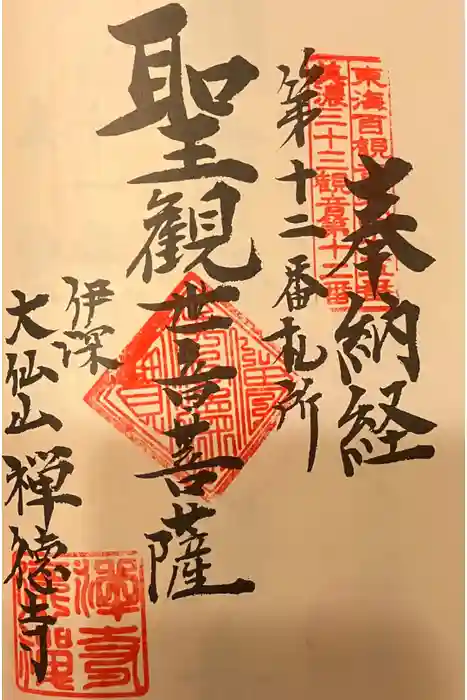 奉納経
東海百観音
美濃三十三観音第十二番
第十二番札所
聖観世音菩薩
伊深
大仙山
禅徳寺